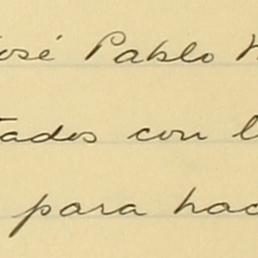 José Pablo
tados con l
para hac